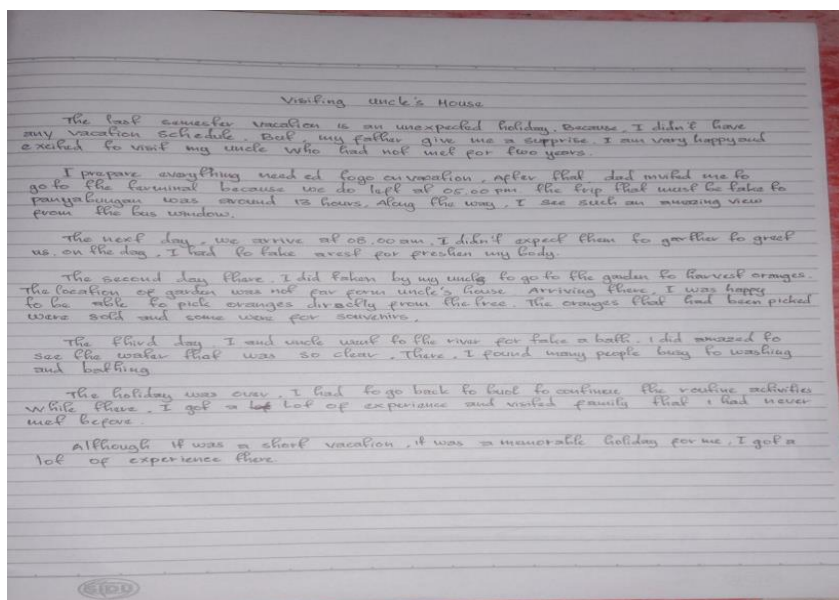 Visiting uncle's House
The last semester vacation is an unexpected holiday. Because, I didn't have
any vacation schedule. But my father give me a supprise. I am vary happy and
excited to visit my uncle who had not met for two years.
I prepare everything need ed togo on vacation. After that dad invited me to
go to the terminal because we do left at 05.00 pm. the trip that must be take to
panyabungan was around 13 hours. Along the way, I see such an amazing view
from the bus window.
The next day, we arrive at 08.00 am, I didn't expect them to garther to greet
us. on the day, I had to take arest for preshen my body.
The second day there, I did taken by my uncle to go to the garden to harvest oranges.
The location of garden was not far form uncle's house. Arriving there, I was happy
to be able to pick oranges directly from the tree. The oranges that had been picked
were sold and some were for souvenirs.
The third day, I and uncle went to the river for take a bath. I did amazed to
see the water that was so clear. There, I found many people busy to washing
and bathing
The holiday was over, I had togo back to to continue the routine activities
while there. I got a lot of experience and visited family that I had never
met before.
Although it was a short vacation, it was a memorable holiday for me, I got a
lot of experience there.
SIDU